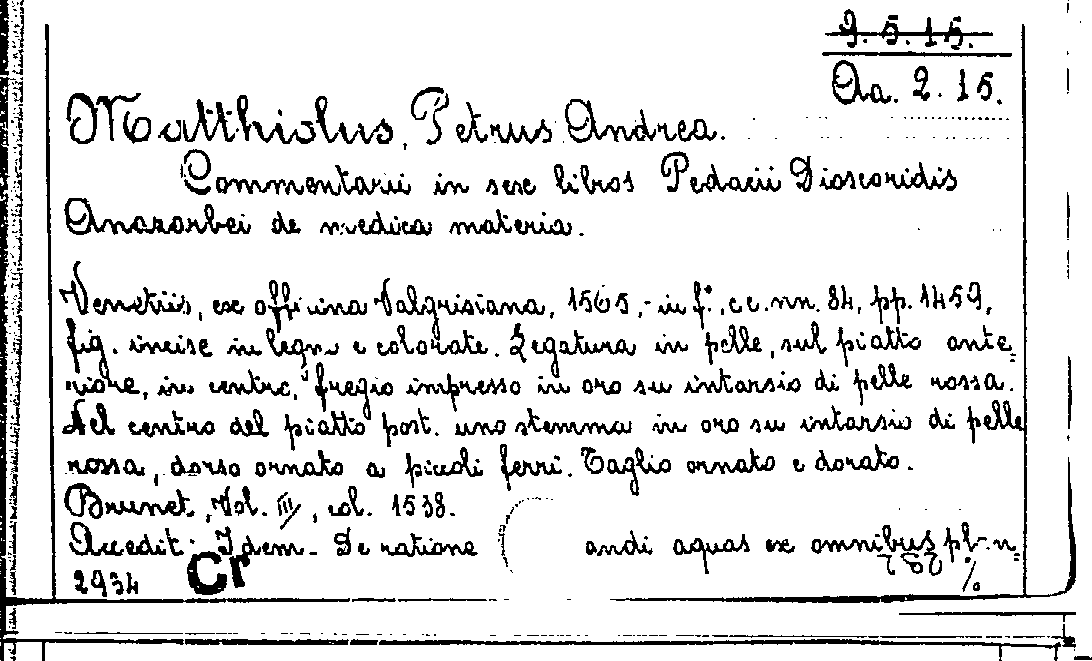 9.5.15.
Aa. 2. 15.
Matthiolus, Petrus Andrea.
Commentarii in sex libros Pedacii Dioscoridis
Anazarbei de medica materia.
Venetiis, ex officina Valgrisiana, 1565,- in f°., cc. nn. 84, pp. 1459,
fig. incise in legno e colorate. Legatura in pelle, sul piatto ante=
riore, in centro, fregio impresso in oro su intarsio di pelle rossa.
Nel centro del piatto post. uno stemma in oro su intarsio di pelle
rossa, dorso ornato a piccoli ferri. Taglio ornato e dorato.
Brunet, Vol. III, col. 1538.
Accedit: Idem- De ratione andi aquas ex omnibus pl n=
2934 Cr ./.